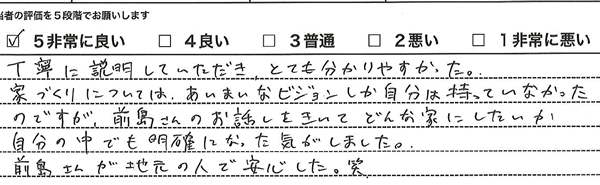 当者の評価を5段階でお願いします
☑ 5非常に良い □ 4良い □ 3普通 □ 2悪い □ 1非常に悪い
丁寧に説明していただき、とても分かりやすかった。
家づくりについては、あいまいなビジョンしか自分は持っていなかった
のですが、前島さんのお話しをきいてどんな家にしたいか
自分の中でも明確になった気がしました。
前島さんが地元の人で安心した。笑